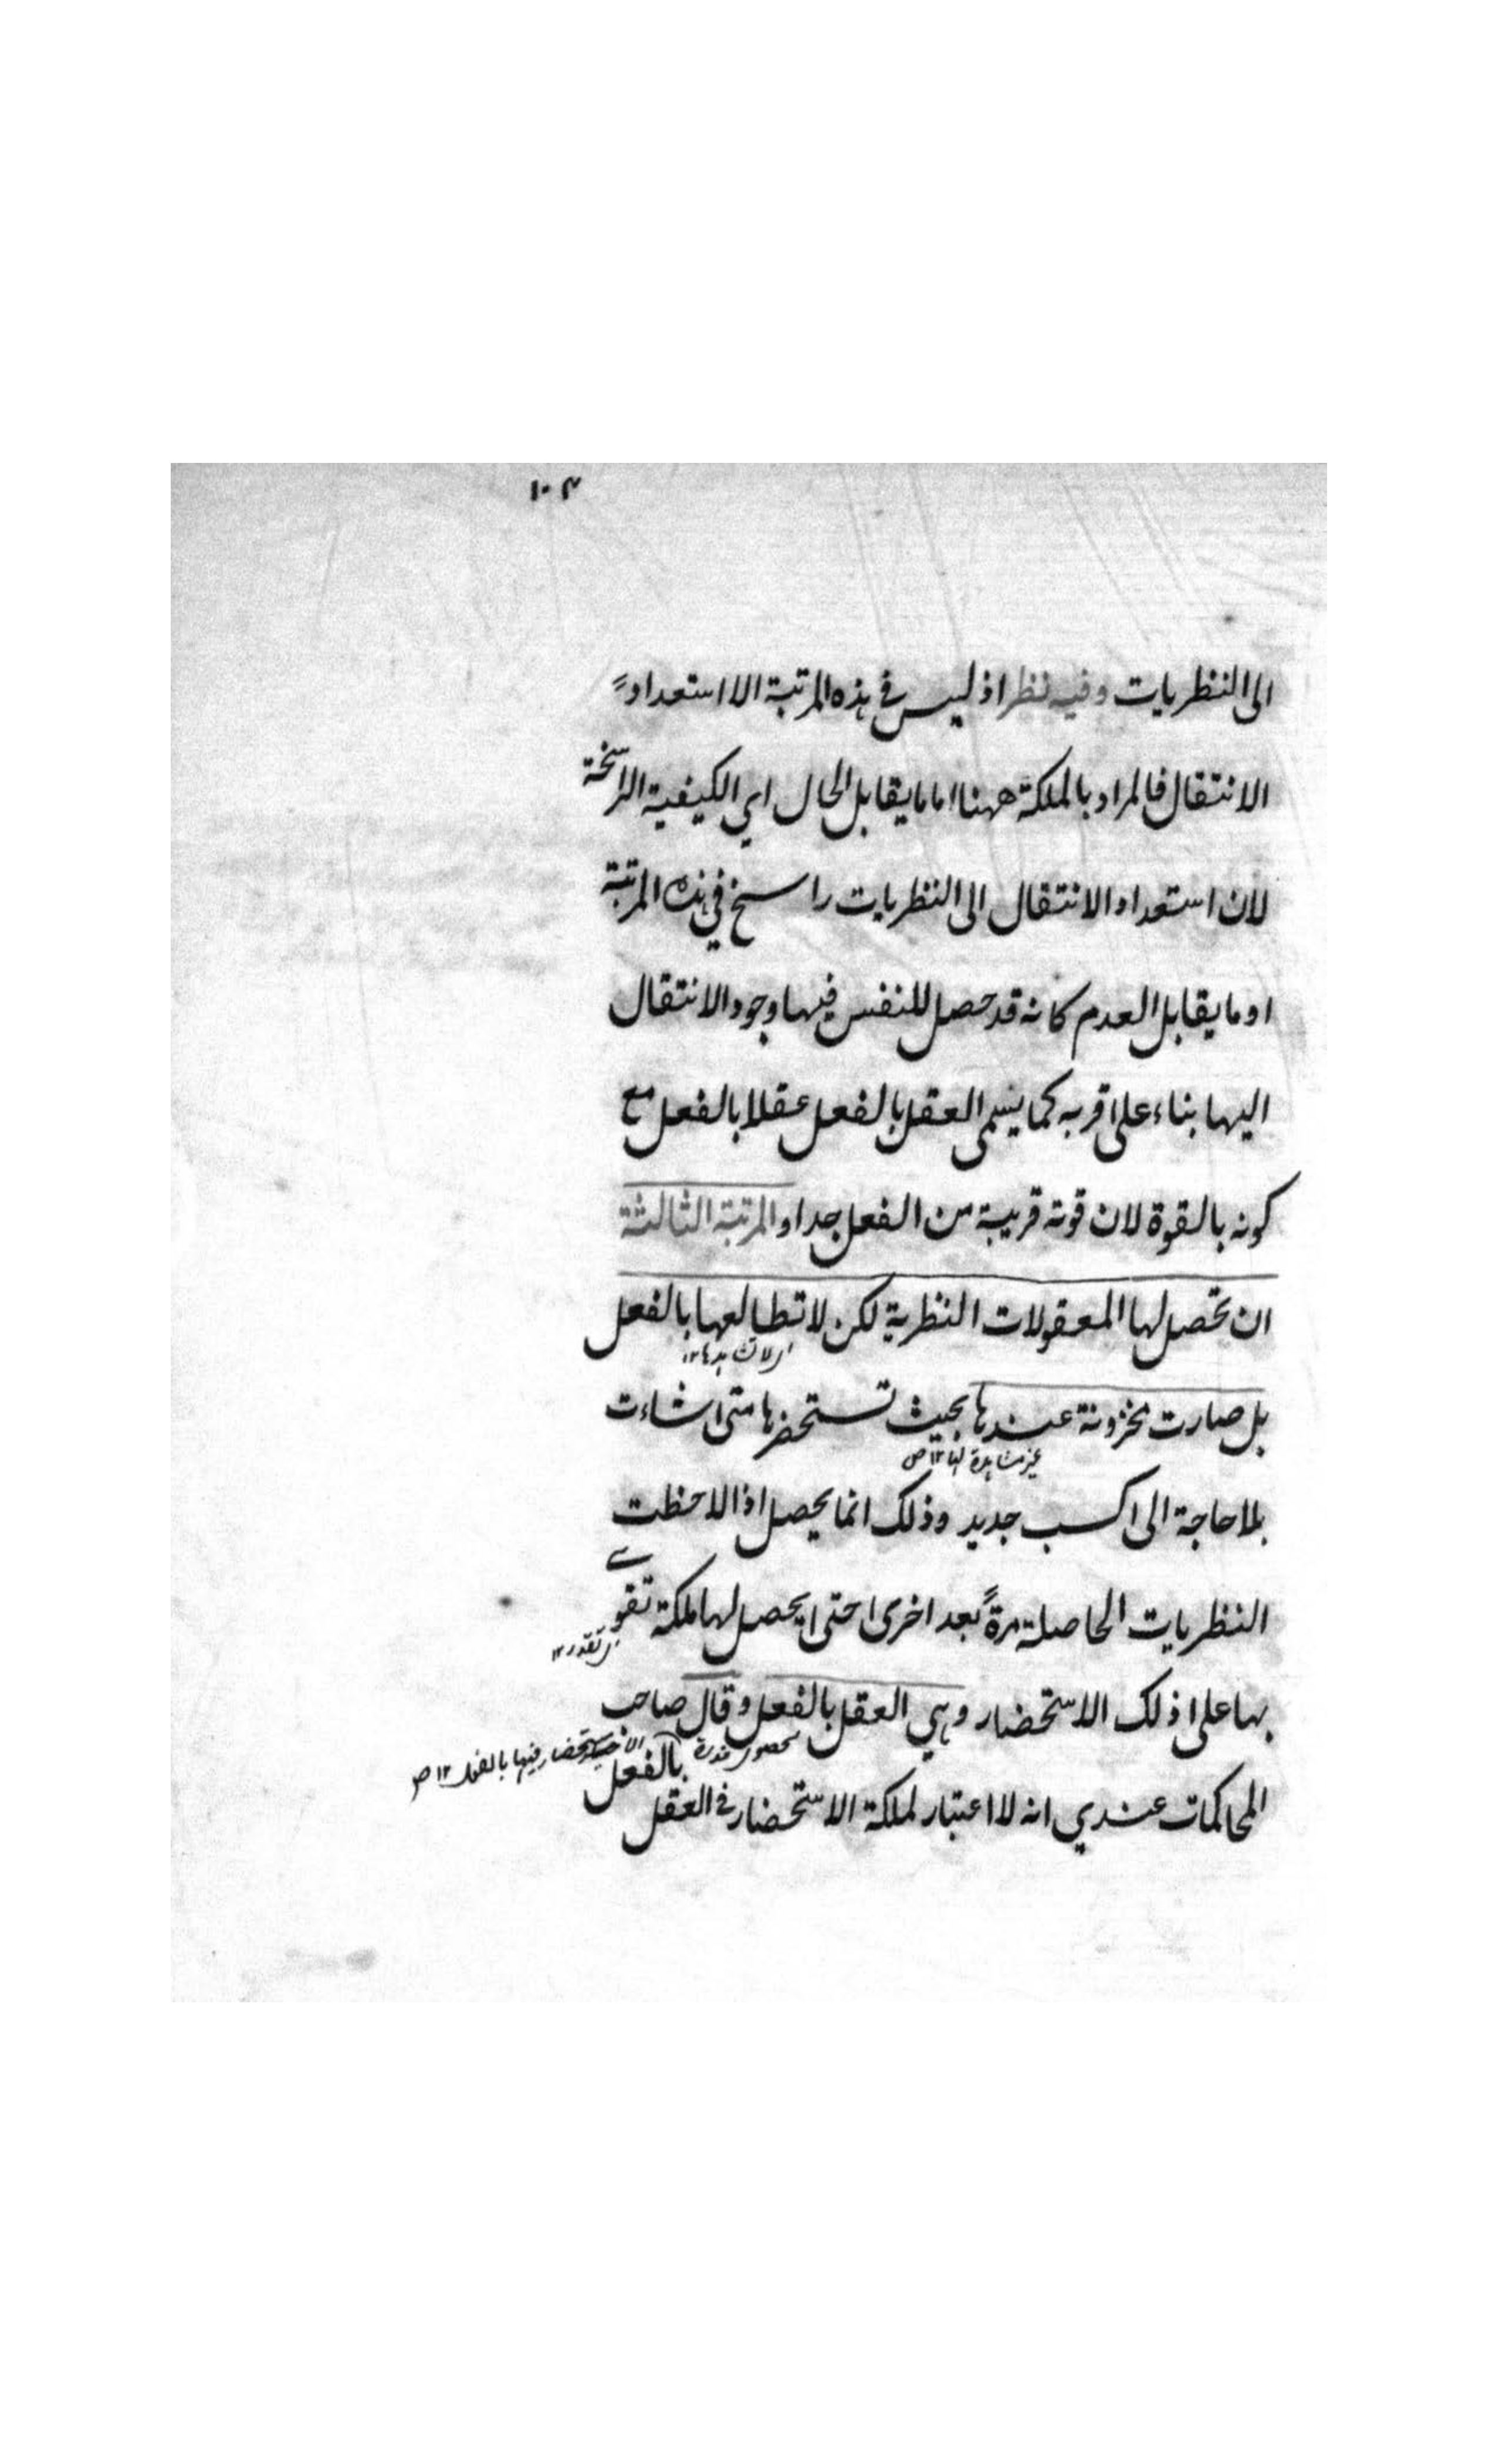 ١٠٣
الى النظريات وفيه نظر اذ ليس في هذه المرتبة الا استعداد
الانتقال فالمراد بالملكة ههنا اما ما يقابل الحال اي الكيفية الراسخة
لان استعداد الانتقال الى النظريات راسخ في هذه المرتبة
او ما يقابل العدم كانه قد حصل للنفس فيها وجود الانتقال
اليها بناء على قربه كما يسمى العقل بالفعل عقلا بالفعل مع
كونه بالقوة لان قوته قريبة من الفعل جدا والمرتبة الثالثة
ان تحصل لها المعقولات النظرية لكن لا تطالعها بالفعل
اي لا تشاهدها ١٢
بل صارت مخزونة عندها بحيث تستحضرها متى شاءت
غير مشاهدة لها ١٢ ص
بلا حاجة الى كسب جديد وذلك انما يحصل اذا لاحظت
النظريات الحاصلة مرةً بعد اخرى حتى يحصل لها ملكة تقوى
اي تقدر ١٢
بها على ذلك الاستحضار وهي العقل بالفعل وقال صاحب
الاستحضار فيها بالفعل ١٢ ص
المحاكمات عندي انه لا اعتبار لملكة الاستحضار في العقل بالفعل